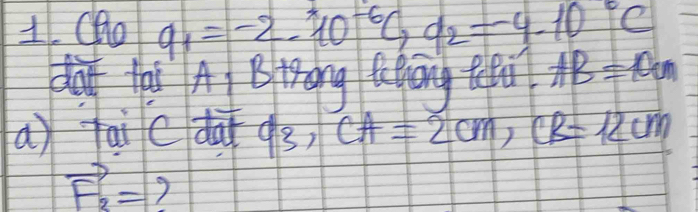 1. Cho q₁ = -2.10⁻⁶C, q₂ = -4.10⁻⁶C
đặt tại A, B trong không khí. AB = 10cm
a) Tại C đặt q₃, CA = 2cm, CB = 12cm
F₃ = ?